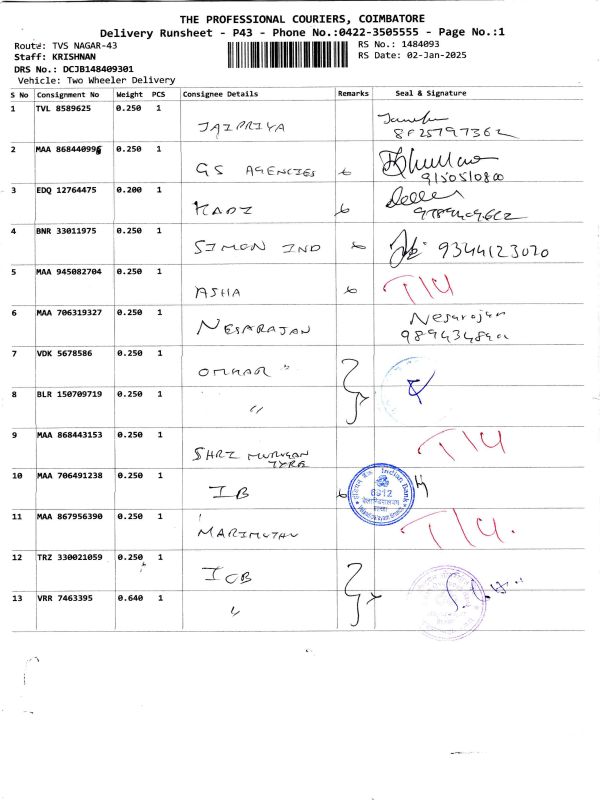 THE PROFESSIONAL COURIERS, COIMBATORE
Delivery Runsheet - P43 - Phone No.:0422-3505555 - Page No.:1
Route: TVS NAGAR-43
RS No.: 1484093
Staff: KRISHNAN
RS Date: 02-Jan-2025
DRS No.: DCJB148409301
Vehicle: Two Wheeler Delivery
S No Consignment No Weight PCS Consignee Details Remarks Seal & Signature
1 TVL 8589625 0.250 1 JAIPRIYA
2 MAA 868440996 0.250 1 GS AGENCIES
9150510800
3 EDQ 12764475 0.200 1
4 BNR 33011975 0.250 1 SIMON IND 9344123020
5 MAA 945082704 0.250 1 ASHA
6 MAA 706319327 0.250 1 NESARAJAN Nesarajan
7 VDK 5678586 0.250 1 OMKAR "
8 BLR 150709719 0.250 1 "
9 MAA 868443153 0.250 1 SHRI MURUGAN
TYRE
10 MAA 706491238 0.250 1 IB Indian Bank
11 MAA 867956390 0.250 1 MARIMUTHU
12 TRZ 330021059 0.250 1 IOB
13 VRR 7463395 0.640 1 "